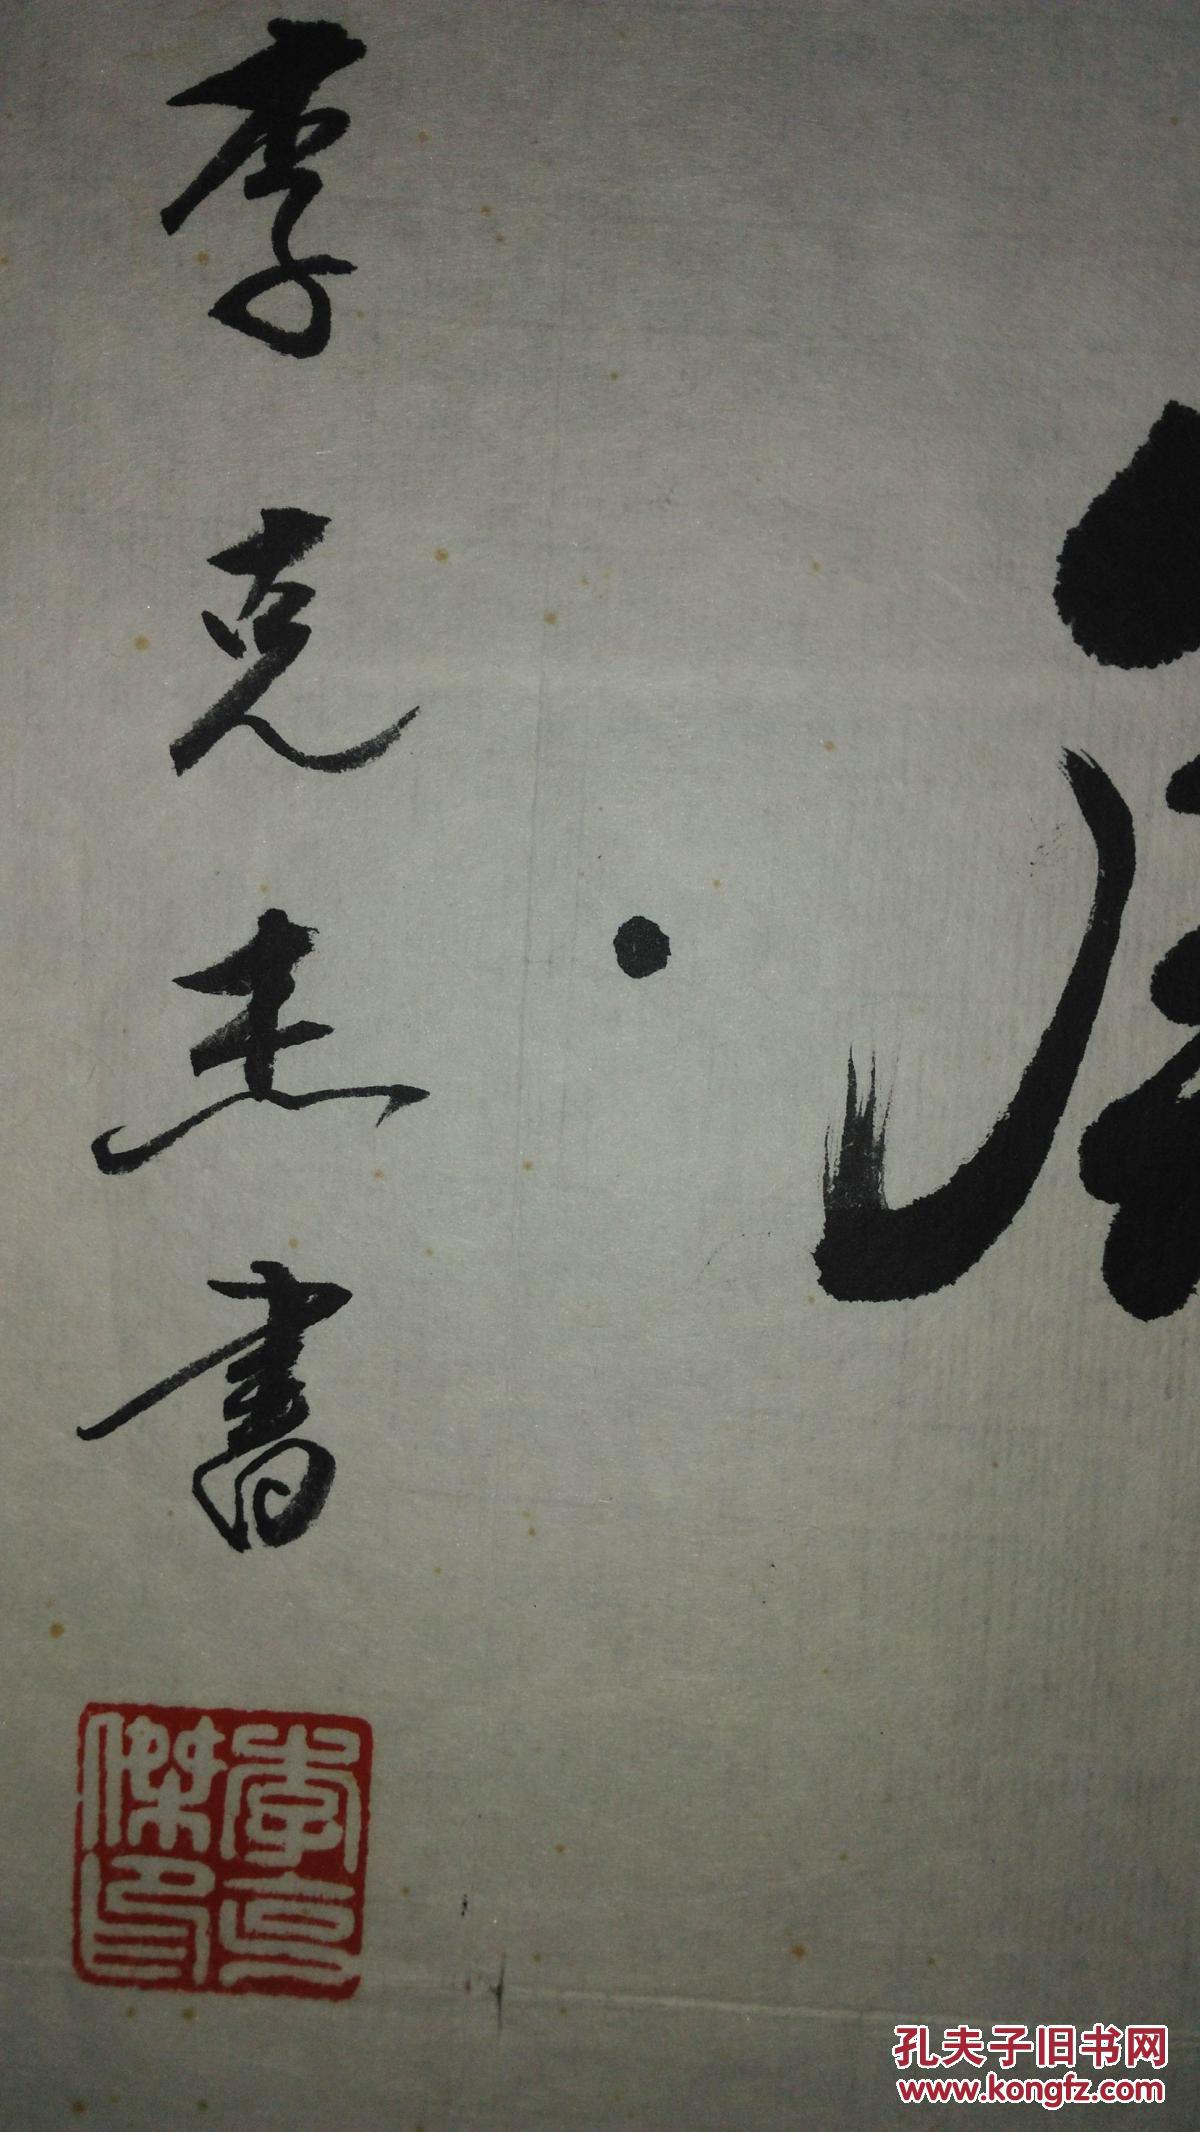 李克杰書
李克傑印
孔夫子旧书网
www.kongfz.com